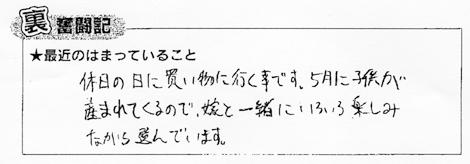 裏奮闘記
★最近のはまっていること
休日の日に買い物に行く事です。5月に子供が
産まれてくるので、嫁と一緒にいろいろ楽しみ
ながら選んでいます。